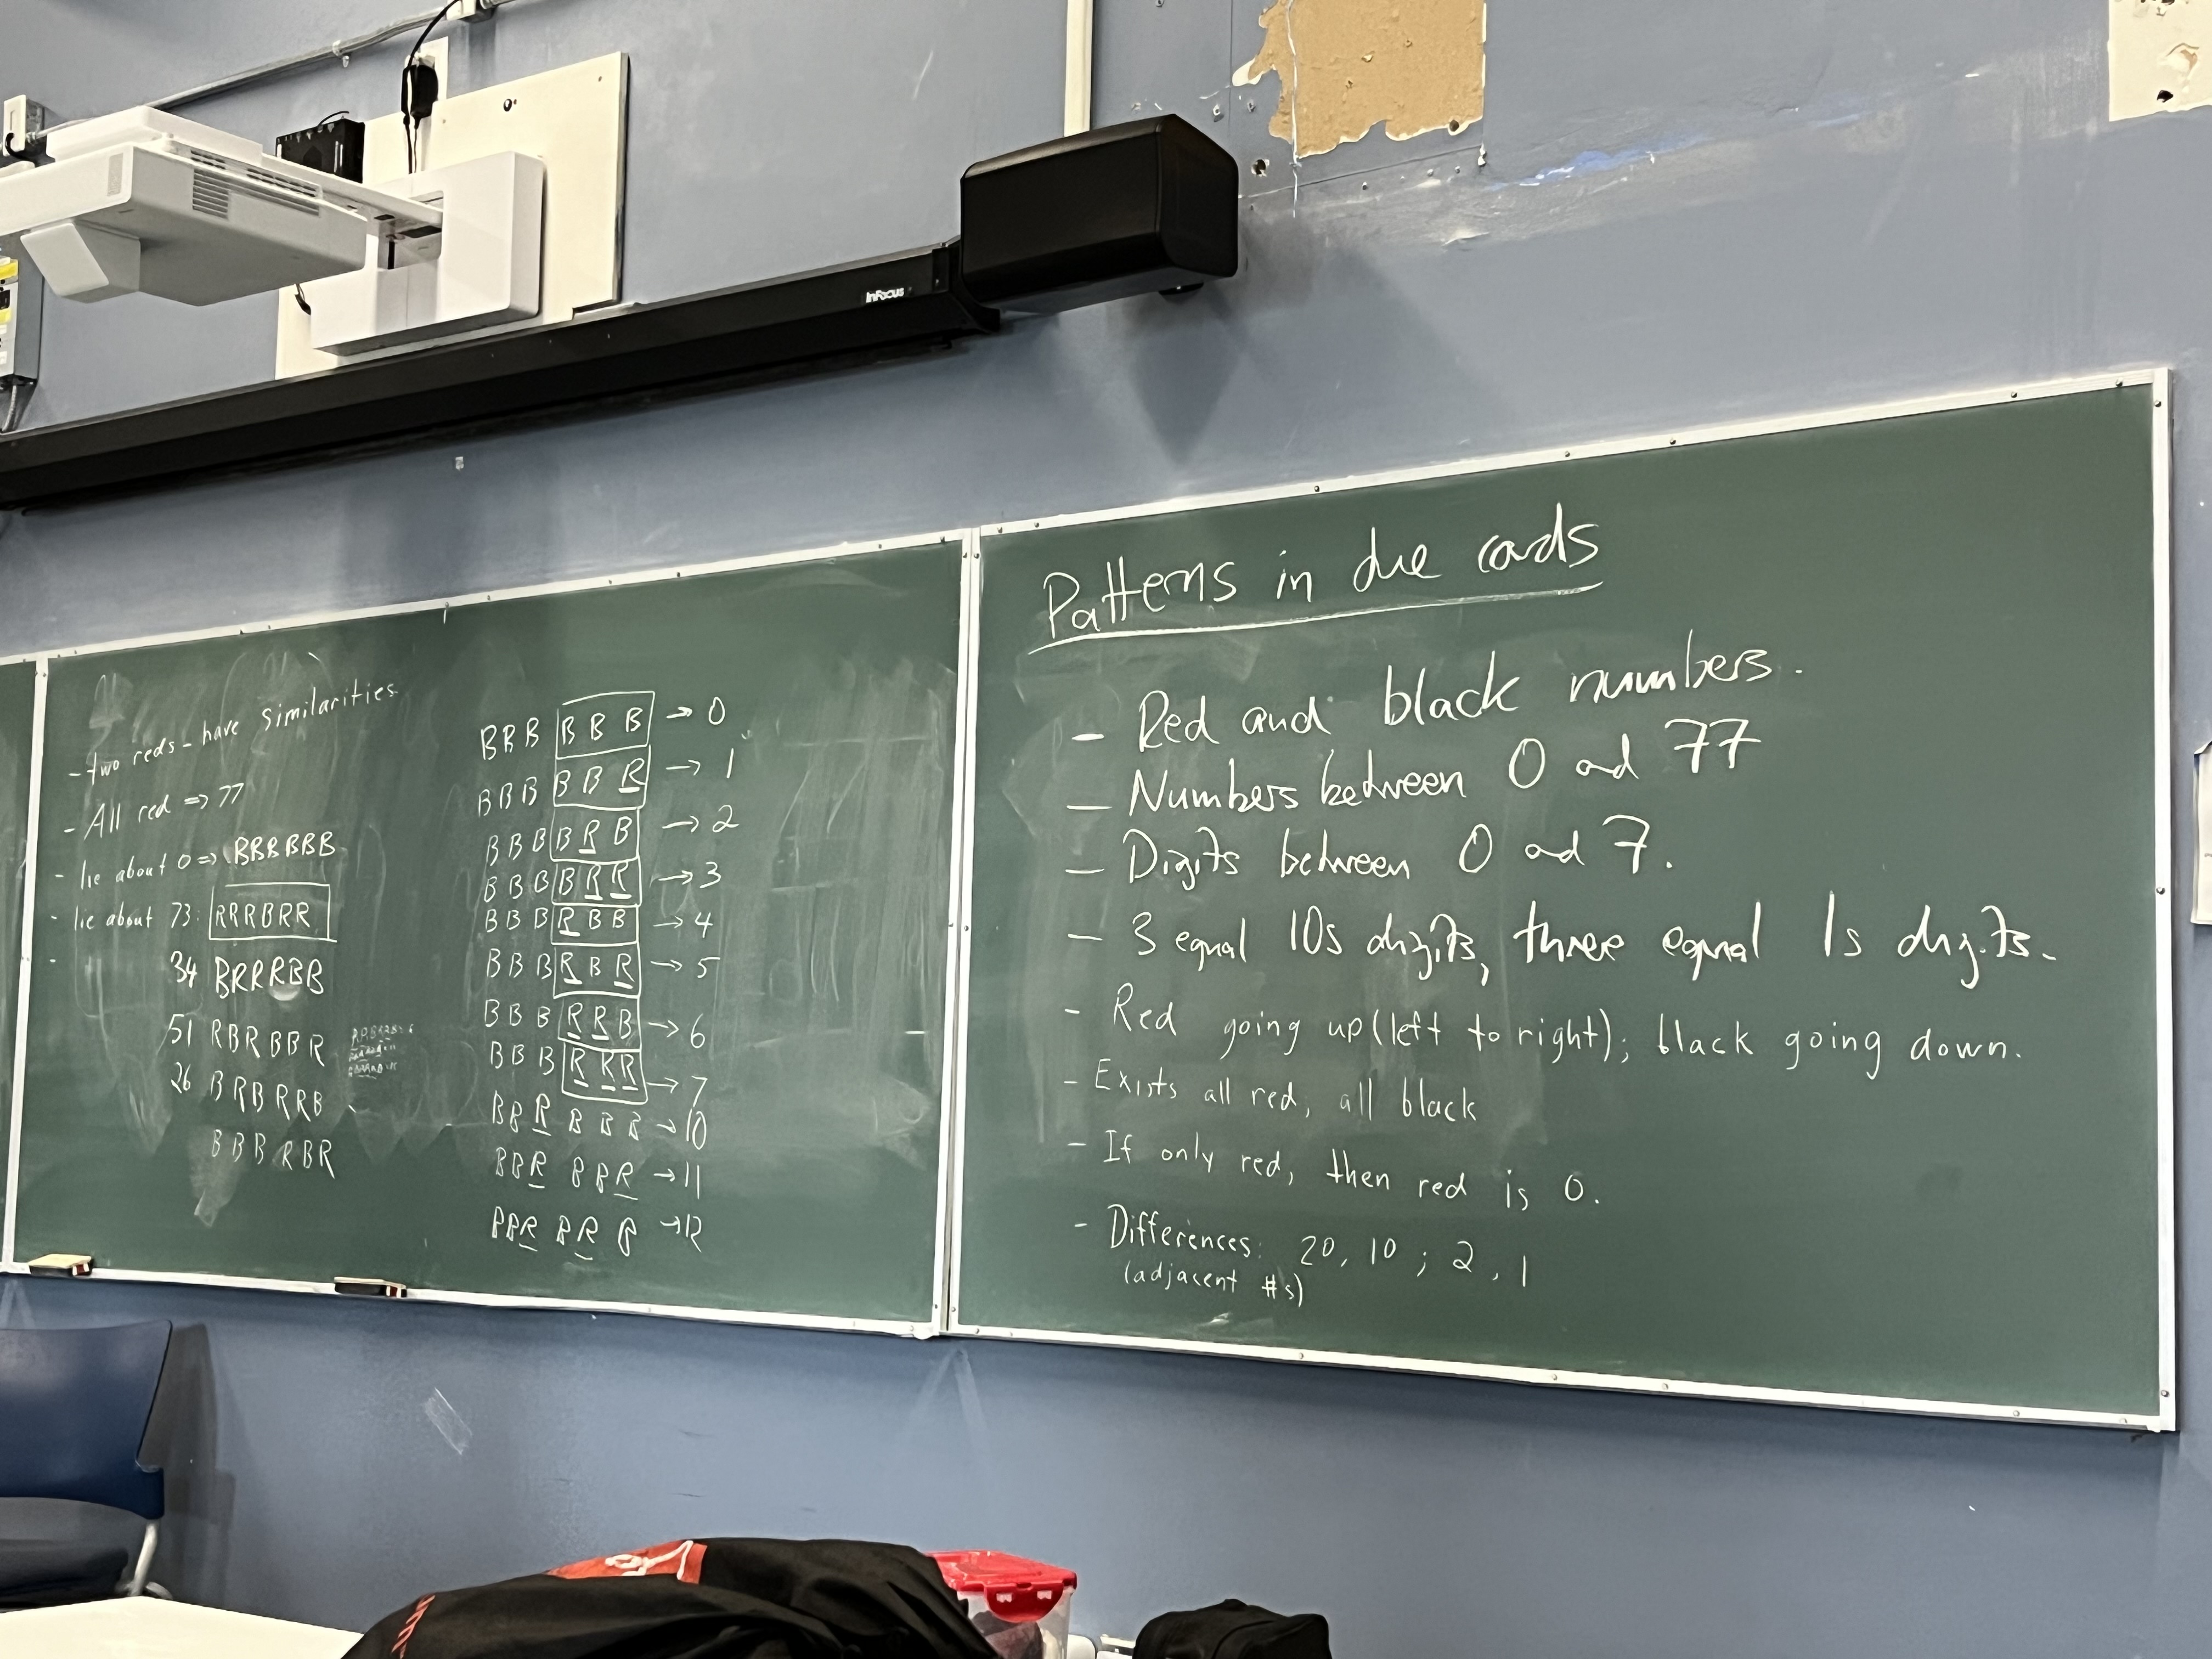 InFocus
- two reds - have similarities
- All red => 77
- lie about 0 => BBBBBB
- lie about 73: RRRBRR
34 BRRRBB
51 RBRBBR
26 BRBRRB
BBBRBR
BBB BBB → 0
BBB BBR → 1
BBB BRB → 2
BBB BRR → 3
BBB RBB → 4
BBB RBR → 5
BBB RRB → 6
BBB RRR → 7
BBR BBB → 10
BBR BBR → 11
BBR BRB → 12
Patterns in due cards
- Red and black numbers.
- Numbers between 0 and 77
- Digits between 0 and 7.
- 3 equal 10s digits, three equal 1s digits.
- Red going up (left to right); black going down.
- Exists all red, all black
- If only red, then red is 0.
- Differences: 20, 10 ; 2, 1
(adjacent #s)